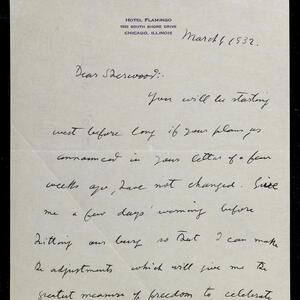 HOTEL FLAMINGO
5520 SOUTH SHORE DRIVE
CHICAGO, ILLINOIS
March 6 1932.
Dear Sherwood:
Your will be starting
west before long if your plans as
announced in your letter of a few
weeks ago, have not changed. Give
me a few days' warning before
hitting our burg so that I can make
the adjustments which will give me the
greatest measure of freedom to celebrate